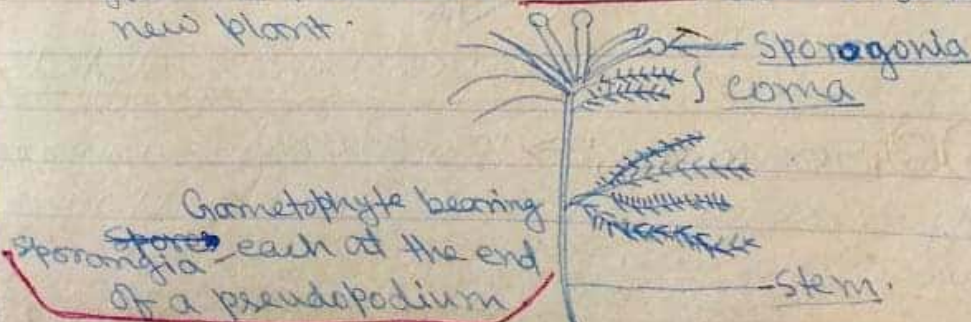 new plant.
Sporogonia
coma
Gametophyte bearing
sporangia - each at the end
of a pseudopodium
stem.